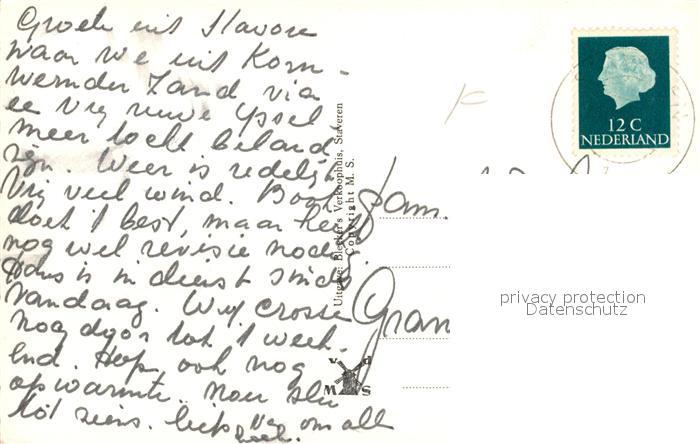 Groeten uit Stavoren
waar we uit Korn-
wernder Zand via
ee vrij ruwe IJssel
meer tocht beland
zijn. Weer is redelijk
Vrij veel wind. Boot
doet 't best, maar
nog wel revisie nodig.
Hans is in dienst sinds
vandaag. Wij crossen
nog door tot 't week-
end. Hoop ook nog
opwarmte. Nou
tot ziens. liefs van allen
Fam.
Gran
Uitgave: Bleeker's Verkoophuis, Staveren
Copyright M. S.
v d
M S
12 C
NEDERLAND
privacy protection
Datenschutz